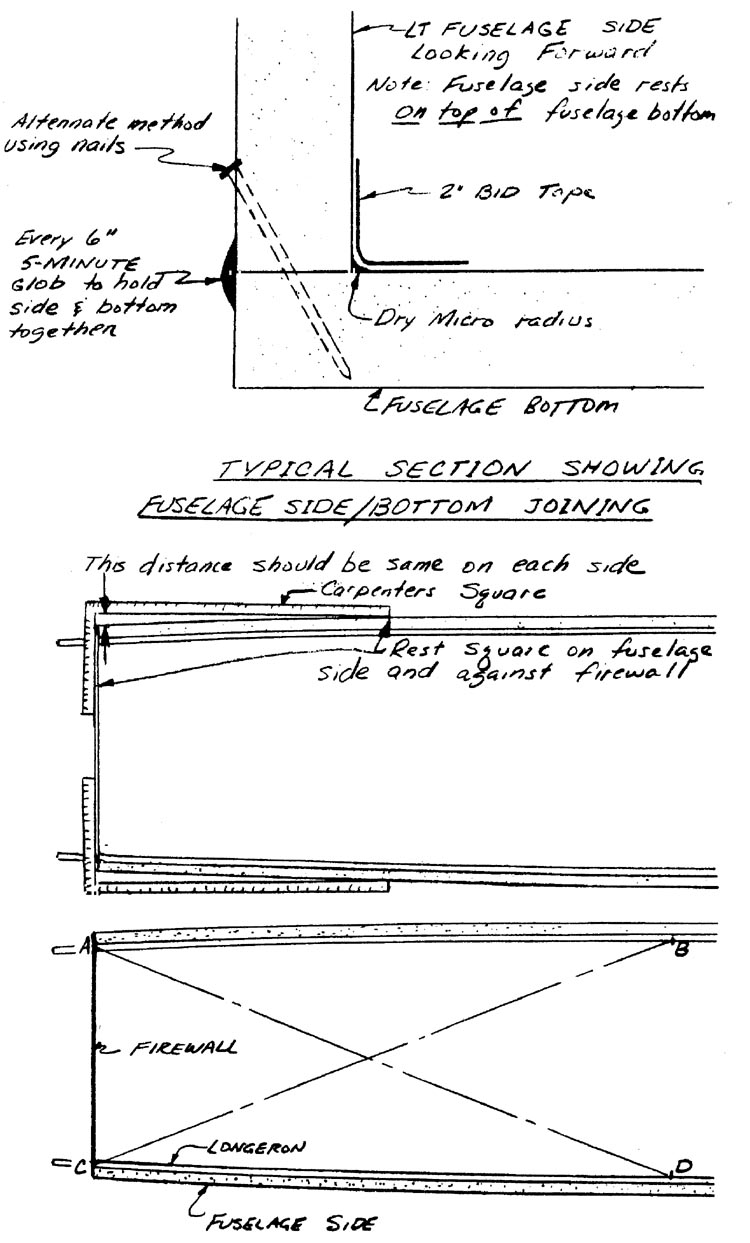 LT FUSELAGE SIDE
Looking Forward
Note: Fuselage side rests
on top of fuselage bottom
Altennate method
using nails
2" BID Tape
Every 6"
5-MINUTE
Glob to hold
side & bottom
together
Dry Micro radius
FUSELAGE BOTTOM
TYPICAL SECTION SHOWING
FUSELAGE SIDE/BOTTOM JOINING
This distance should be same on each side
Carpenters Square
Rest Square on fuselage
side and against firewall
A
B
FIREWALL
LONGERON
C
D
FUSELAGE SIDE